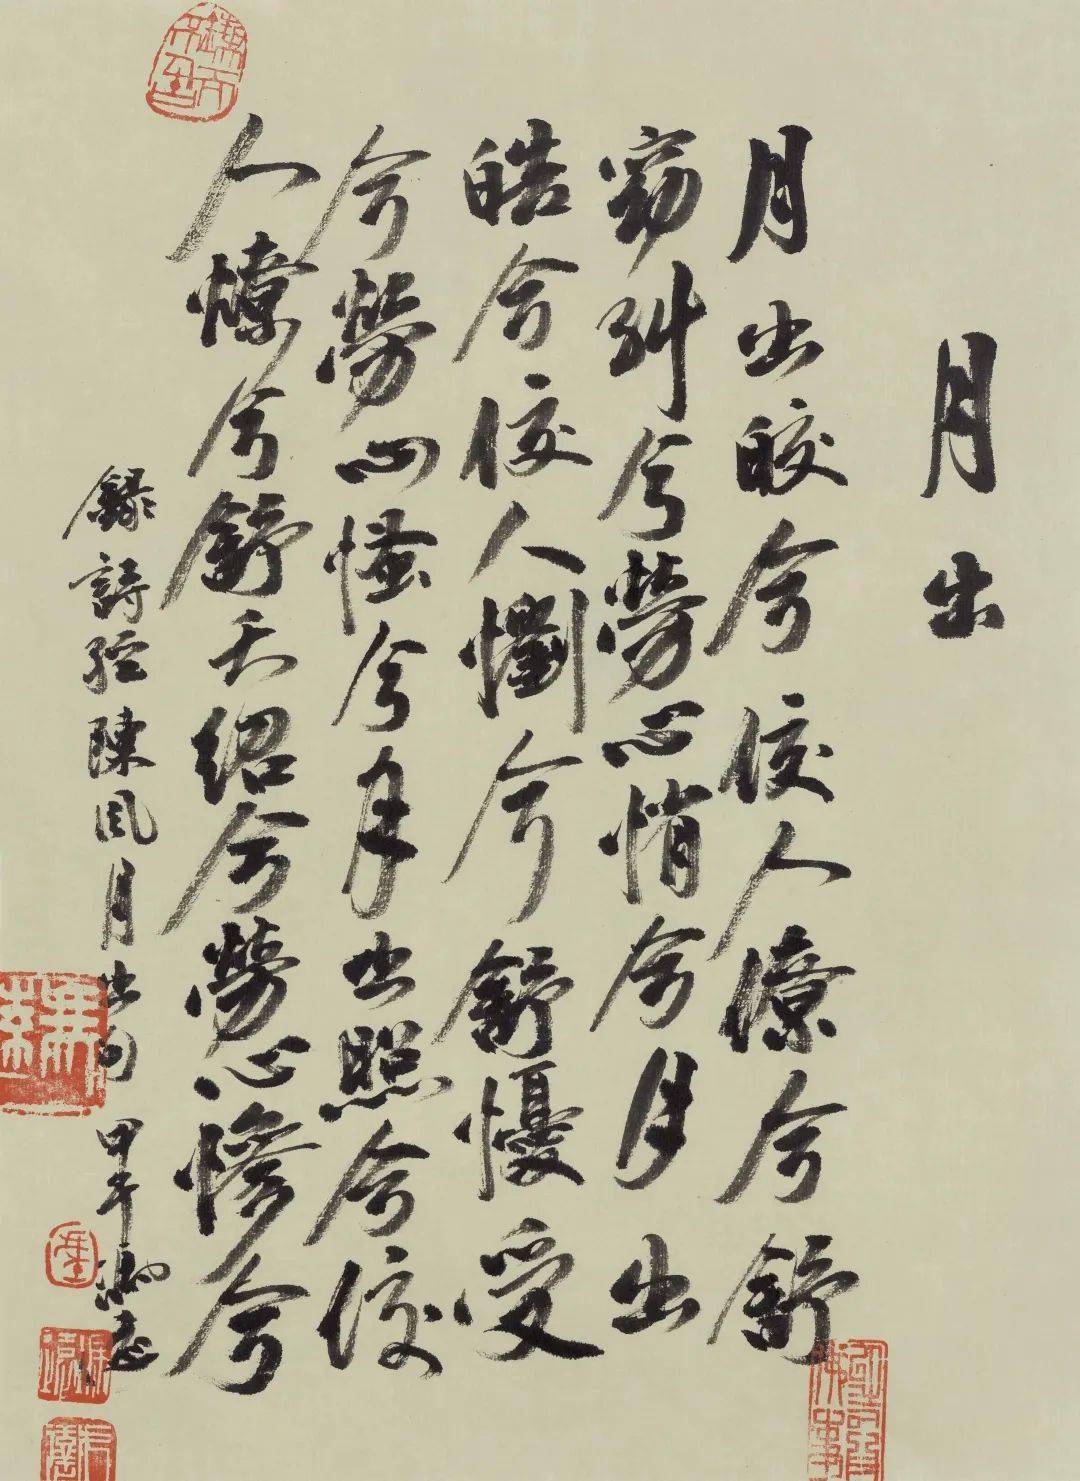 月出
月出皎兮佼人僚兮舒
窈糾兮勞心悄兮月出
皓兮佼人懰兮舒懮受
兮勞心慅兮月出照兮佼
人燎兮舒夭紹兮勞心慘兮
錄詩經陳風月出句 甲午